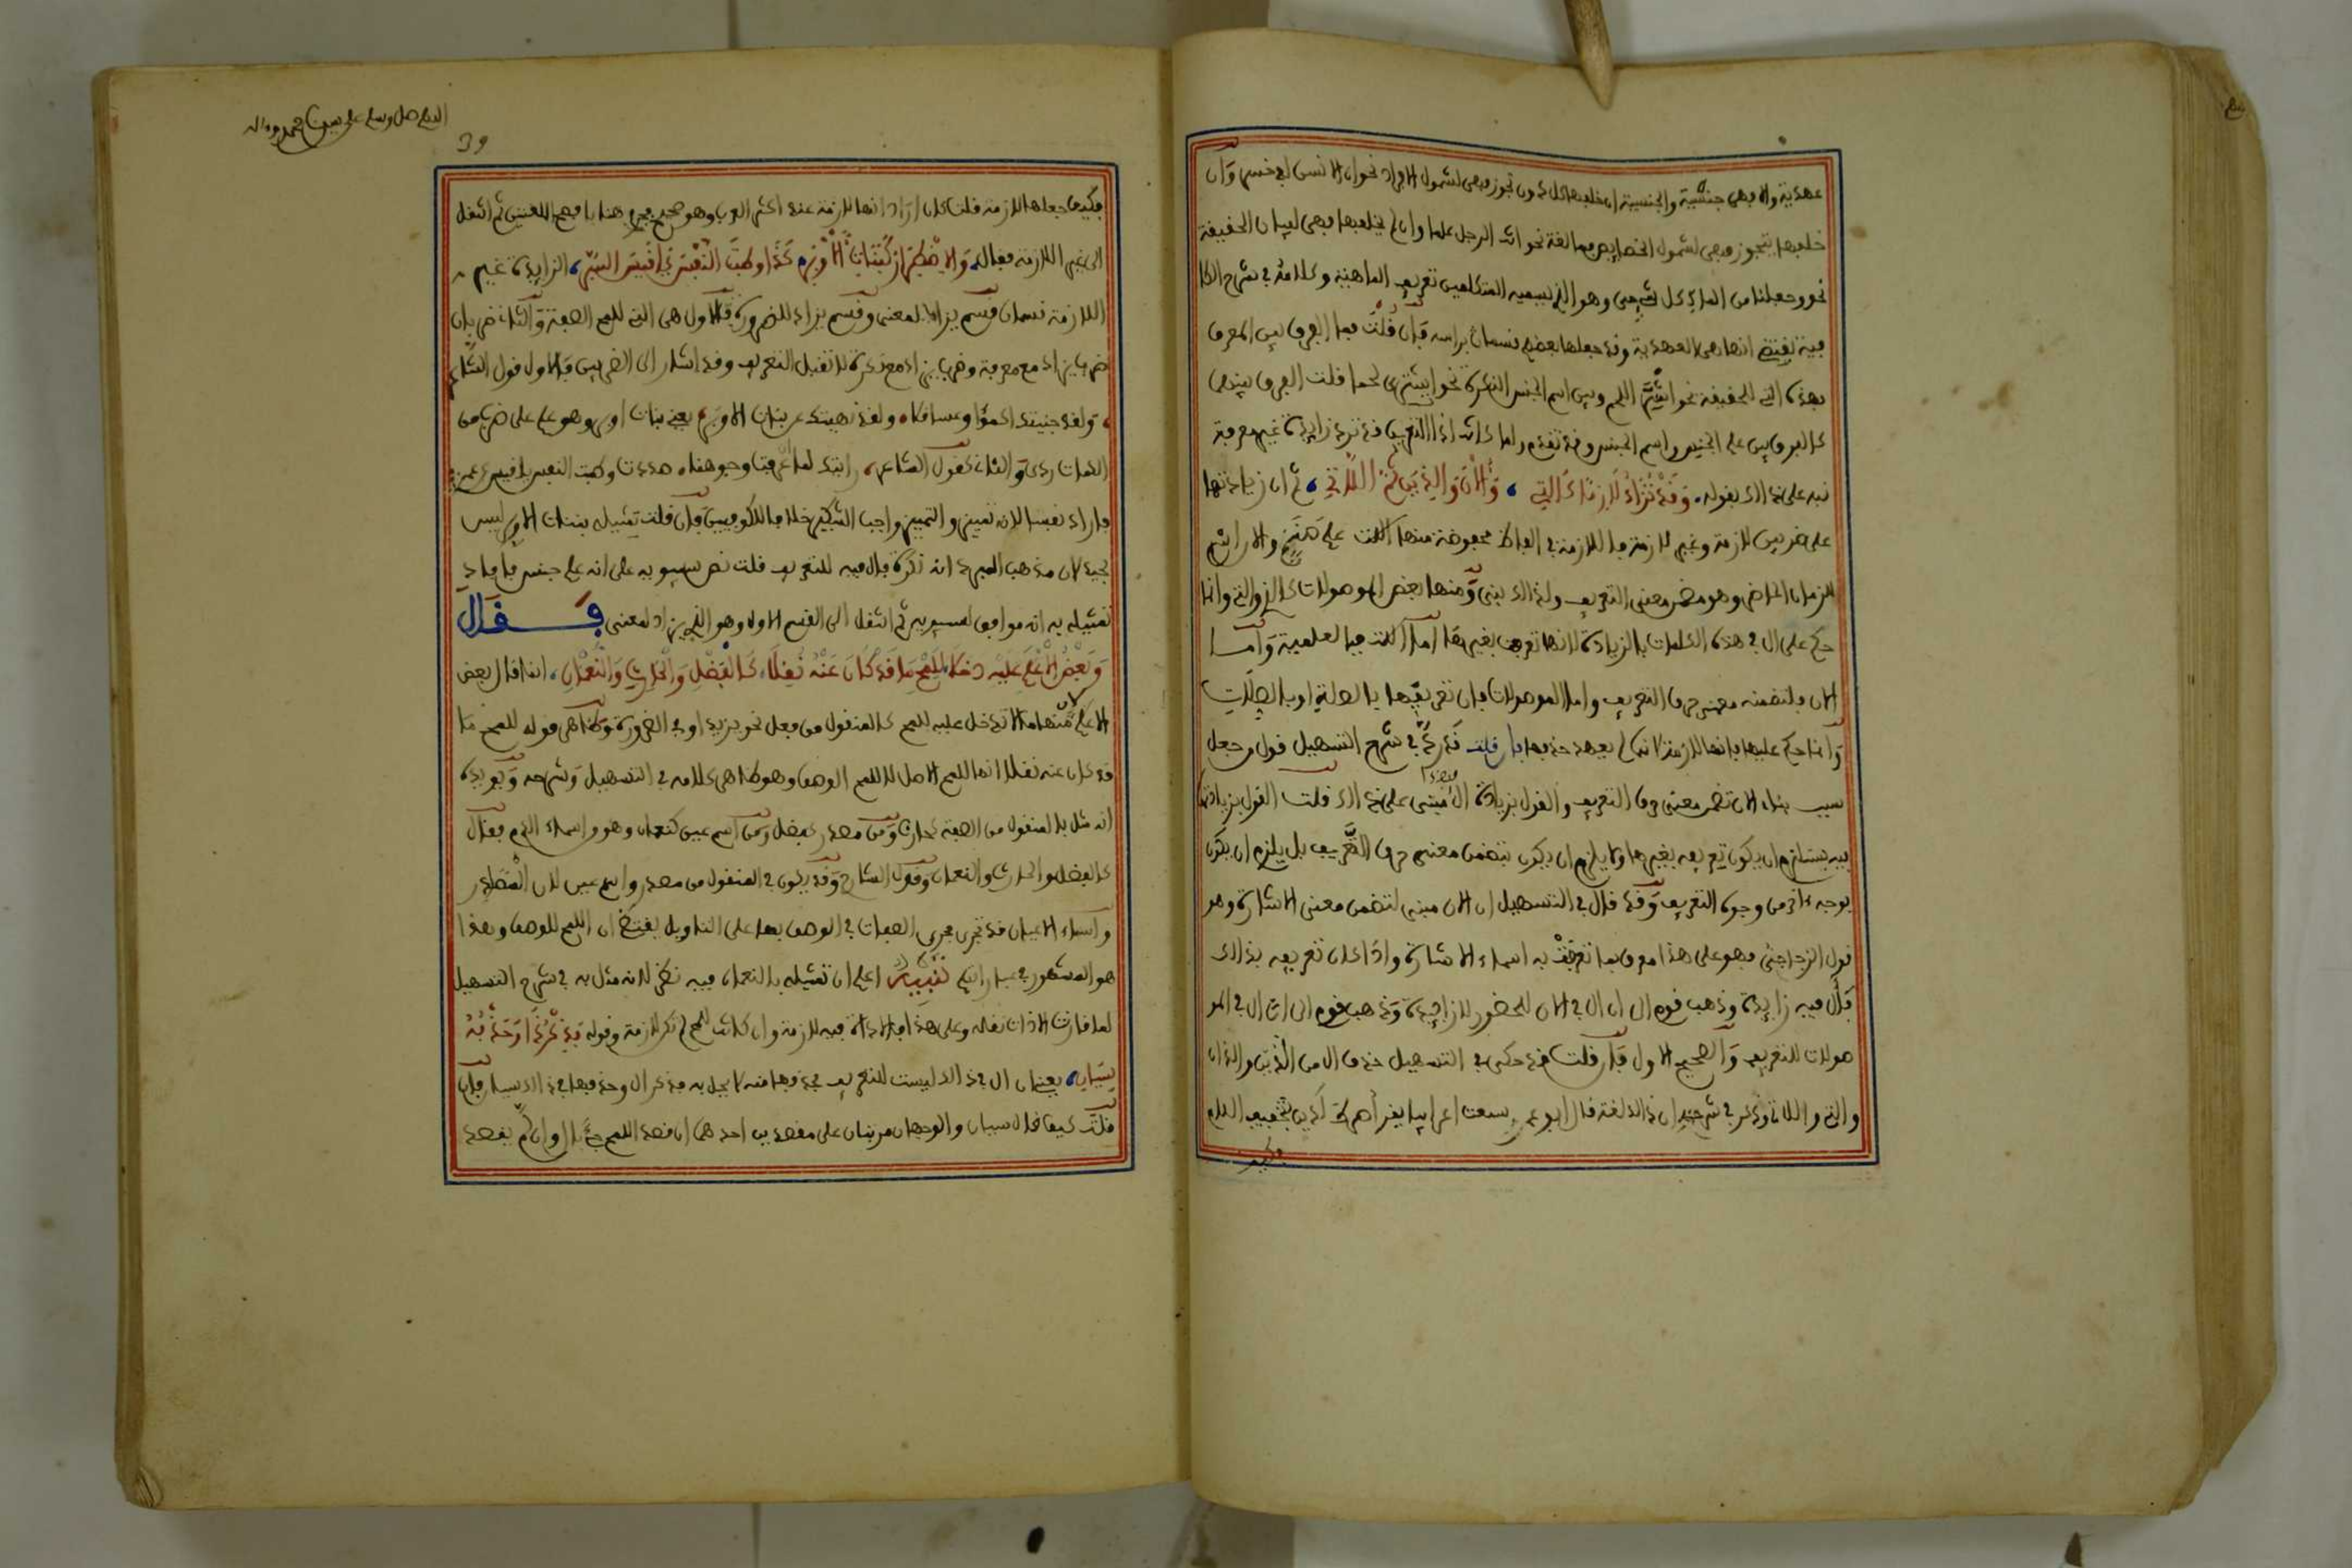 عهدية والا فهي جنسية والجنسية ان خلفها كل دون تجوز فهي لشمول الافراد نحو ان الانسان لفي خسر وان
خلفها بتجوز فهي لشمول الخصايص مبالغة نحو انت الرجل علما وان لم يخلفها فهي لبيان الحقيقة
نحو وجعلنا من الماء كل شيء حي وهو الذي يسميه المتكلمين تعريف الماهية وكلامه في شرح الكا
فية يقتضي انها هي العهدية وقد جعلها بعضهم قسما براسه فان قلت فما الفرق بين المعرف
بهذه التي للحقيقة نحو اشتر اللحم وبين اسم الجنس النكرة نحو اشتر لحما قلت الفرق بينهما
كالفرق بين علم الجنس واسم الجنس وقد تقدم ولما كانت اداة التعريف قد ترد زايدة غير معرفة
نبه على ذالك بقوله وقد تزاد لازما كالتي والان والذين ثم اللاتي ثم ان زيادتها
على ضربين لازمة وغير لازمة فاللازمة في الفاظ محفوظة منها اللات علم صنم والان اسم
للزمان الحاضر وهو مضمن معنى التعريف ولذالك بني ومنها بعض الموصولات كالذي والتي وانما
حكم على ال في هذه الكلمات بالزيادة لانها تعرفت بغيرها اما اللات فبالعلمية واما
الان فلتضمنه معنى حرف التعريف واما الموصولات فان تعريفها بالصلة او بالصلات
وانما حكم عليها بانها لازمة لانها لم يعهد حذفها فان قلت ذكر في شرح التسهيل قول وجعل
سبب بناء الان تضمن معنى حرف التعريف والقول بزيادة ال ايضا مبني على ذالك قلت القول بزيادتها
فيه يستلزم ان يكون تعريفه بغيرها ولا يلزم ان يكون بتضمن معنى حرف التعريف بل يلزم ان يكون
بوجه ءاخر من وجوه التعريف وقد قال في التسهيل ان الان مبني لتضمن معنى الاشارة وهو
قول الزجاج فهو على هذا معرف بما تعرفت به اسماء الاشارة واذا كان تعريفه بذالك
فال فيه زايدة وذهب قوم الى ان ال في الان للحضور لا زايدة وذهب قوم الى ان ال في المو
صولات للتعريف والصحيح الاول فان قلت قد حكى في التسهيل حذف ال من الذين واللذان
والتي واللاتي وذكر في شرحه ان ذالك لغة قال ابو عمرو سمعت اعرابيا يقرأ صراط لذين بتخفيف اللام
فكيف
اللهم صل وسلم على سيدنا محمد وءاله
39
فكيف جعلها لازمة قلت كان اراد انها لازمة عند اكثر العرب وهو صحيح هنا بافصح اللغتين ثم انتقل
الى غير اللازمة فقال ولاضطرار كبنات الاوبر كذا وطبت النفس يا قيس السري الزايدة غير
اللازمة قسمان قسم يزاد لمعنى وقسم يزاد للضرورة فالاول هي التي للمح الصفة والثاني ضربان
ضرب يزاد مع معرفة وضرب يزاد مع نكرة لا تقبل التعريف وقد اشار الى الضربين فالاول قول الشاعر
ولقد جنيتك اكمؤا وعساقلا ولقد نهيتك عن بنات الاوبر يعني بنات اوبر وهو علم على ضرب من
الكمات ردي والثاني كقول الشاعر رايتك لما ان عرفت وجوهنا صددت وطبت النفس يا قيس عن عمرو
فاراد نفسا لانه تمييز والتمييز واجب التنكير خلافا للكوفيين فان قلت تمثيله ببنات الاوبر ليس
بجيد لان مذهب المبرد انه نكرة فال فيه للتعريف قلت نص سيبويه على انه علم جنس فافاد
تمثيله به انه موافق لسيبويه ثم انتقل الى القسم الاول وهو الذي يزاد لمعنى فقال
وبعض الاعلام عليه دخلا للمح ما قد كان عنه نقلا كالفضل والحارث والنعمان انما قال بعض
الاعلام لان منها ما لا تدخل عليه للمح كالمنقول من فعل نحو يزيد او في الضرورة وظاهر قوله للمح ما
قد كان عنه نقلا انها للمح الاصل لا للمح الوصف وهو ظاهر كلامه في التسهيل وشرحه ويؤيده
انه مثل بالمنقول من الصفة كحارث ومن مصدر كفضل ومن اسم عين كنعمان وهو من اسماء الدم فقال
كالفضل والحارث والنعمان وقول الشارح وقد يكون في المنقول من مصدر واسم عين لان المصادر
واسماء الاعيان قد تجرى مجرى الصفات في الوصف بها على التاويل يقتضي ان اللمح للوصف وهذا
هو المشهور في عباراتهم تنبيه اعلم ان تمثيله بالنعمان فيه نظر لانه مثل به في شرح التسهيل
لما قارنت الاداة نقله وعلى هذا فالاداة فيه لازمة وان كانت للمح لم تكن لازمة وقوله فذكر ذا وحذفه
سيان يعني ان ال في ذالك ليست للتعريف فحذفها منه لا يخل به فذكر ال وحذفها في ذالك سيان فان
قلت كيف قال سيان والوجهان مرتبان على مقصدين احدهما ان قصد اللمح جيء بال وان لم يقصد